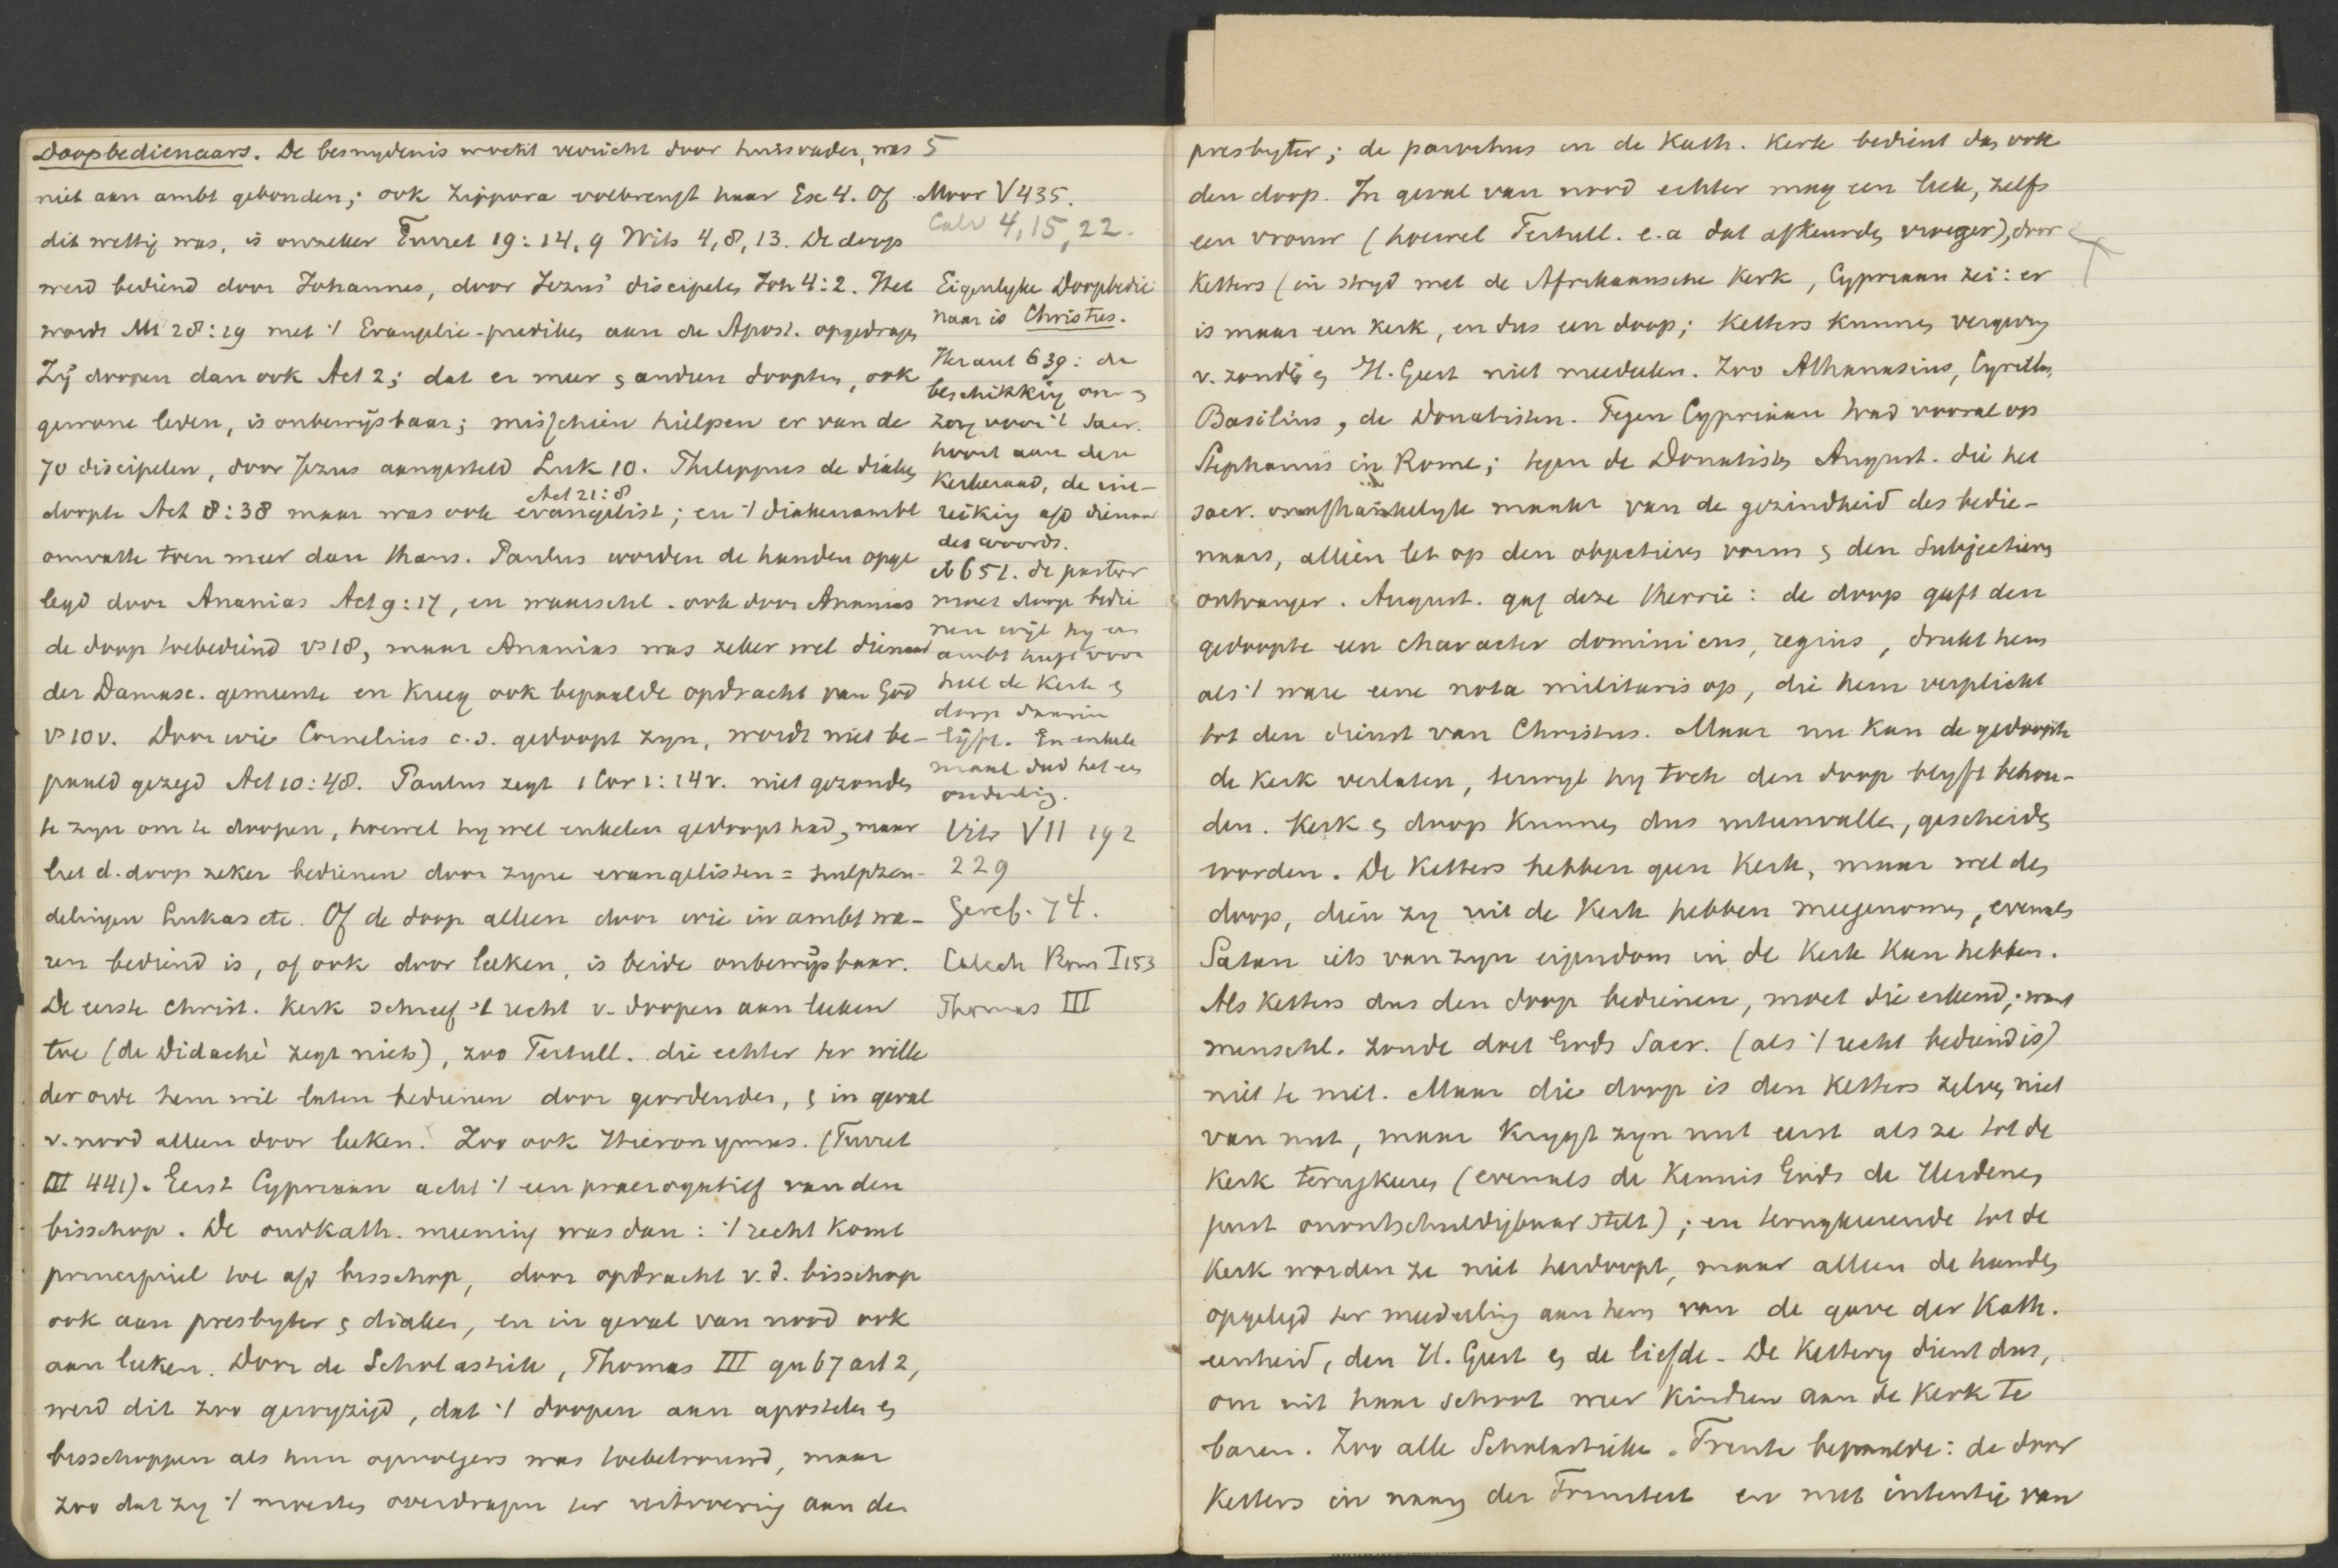 Doopbedienaars. De besnydenis mocht verricht door huisvader, was
niet aan ambt gebonden; ook Zippora volbrengt haar Ex 4. Of
dit wettig was, is onzeker Turret 19:14,9 Wits 4,8,13. De doop
werd bediend door Johannes, door Jezus' discipelen Joh 4:2. Het
wordt Mt 28:19 met 't Evangelie-prediken aan de Apost. opgedragen
Zij doopen dan ook Act 2; dat er meer & anderen doopten, ook
gewone leden, is onbewijsbaar; misschien hielpen er van de
70 discipelen, door Jezus aangesteld Luk 10. Philippus de diaken
Act 21:8
doopte Act 8:38 maar was ook evangelist; en 't diakenambt
omvatte toen meer dan thans. Paulus worden de handen opge
legd door Ananias Act 9:17, en waarschl. ook door Ananias
de doop toebediend vs 18, maar Ananias was zeker wel dienaar
der Damasc. gemeente en kreeg ook bepaalde opdracht van God
vs 10 v. Door wie Cornelius c.s. gedoopt zyn, wordt niet be-
paald gezegd Act 10:48. Paulus zegt 1 Cor 1:14 v. niet gezonden
te zyn om te doopen, hoewel hy wel enkelen gedoopt had, maar
liet d. doop zeker bedienen door zyne evangelisten = hulpzen-
delingen Lukas etc. Of de doop alleen door wie in ambt wa-
ren bediend is, of ook door leeken, is beide onbewijsbaar.
De eerste Christ. Kerk schreef 't recht v. doopen aan leeken
toe (de Didachè zegt niets), zoo Tertull. die echter ter wille
der orde hem wil laten bedienen door geordenden, & in geval
v. nood alleen door leeken. Zoo ook Hieronymus. (Turret
III 441). Eerst Cypriaan acht 't een praerogatief van den
bisschop. De oudkath. meening was dan: 't recht komt
principieel toe a/d bisschop, door opdracht v. d. bisschop
ook aan presbyter & diaken, en in geval van nood ook
aan leeken. Door de Scholastiek, Thomas III qu 67 art 2,
werd dit zoo gewyzigd, dat 't doopen aan apostelen &
bisschoppen als hun opvolgers was toebetrouwd, maar
zoo dat zy 't moesten overdragen ter uitvoering aan den
5
Moor V 435.
Calv 4,15,22.
Eigenlyke Doopbedie
naar is Christus.
Heraut 639: de
beschikking over &
zorg voor 't Sacr.
hoort aan den
Kerkeraad, de uit-
reiking a/d dienaar
des woords.
ib 651. de pastor
moet doop bedie
nen wijl hy een
ambt heeft voor
heel de Kerk &
doop daarin
lijft. En enkele
maal dus het een
ouderling.
Vitr VII 192
229
Geref. 74.
Catech Rom I 153
Thomas III
presbyter; de parochus in de Kath. Kerk bedient dus ook
den doop. In geval van nood echter mag een leek, zelfs
een vrouw (hoewel Tertull. e.a dat afkeurden vroeger), door
ketters (in stryd met de Afrikaansche Kerk, Cypriaan zei: er
is maar een kerk, en dus een doop; Ketters kunnen vergeving
v. zonden & H. Geest niet meedeelen. Zoo Athanasius, Cyrillus,
Basilius, de Donatisten. Tegen Cypriaan trad vooral op
Stephanus in Rome; tegen de Donatisten August. die het
sacr. onafhankelyk maakt van de gezindheid des bedie-
naars, alleen let op den objectieven vorm & den subjectieven
ontvanger. August. gaf deze theorie: de doop geeft den
gedoopte een character dominicus, regius, drukt hem
als 't ware eene nota militaris op, die hem verplicht
tot den dienst van Christus. Maar nu kan de gedoopte
de kerk verlaten, terwyl hy toch den doop blyft behou-
den. Kerk & doop kunnen dus uiteenvallen, gescheiden
worden. De Ketters hebben geen Kerk, maar wel den
doop, dien zy uit de Kerk hebben meegenomen, evenals
Satan iets van zyn eigendom in de Kerk kan hebben.
Als Ketters dus den doop bedienen, moet die erkend; want
menschl. zonde doet Gods Sacr. (als 't recht bediend is)
niet te niet. Maar die doop is den Ketters zelven niet
van nut, maar krygt zyn nut eerst als ze tot de
kerk terugkeeren (evenals de kennis Gods de Heidenen
juist onontschuldigbaar stelt); en terugkeerende tot de
Kerk worden ze niet herdoopt, maar alleen de handen
opgelegd ter mededeeling aan hem van de gave der Kath.
eenheid, den H. Geest & de liefde. De Kettery dient dus,
om uit haar schoot weer kinderen aan de Kerk te
baren. Zoo alle Scholastieken. Trente bepaalde: de door
Ketters in naam der Triniteit en met intentie van